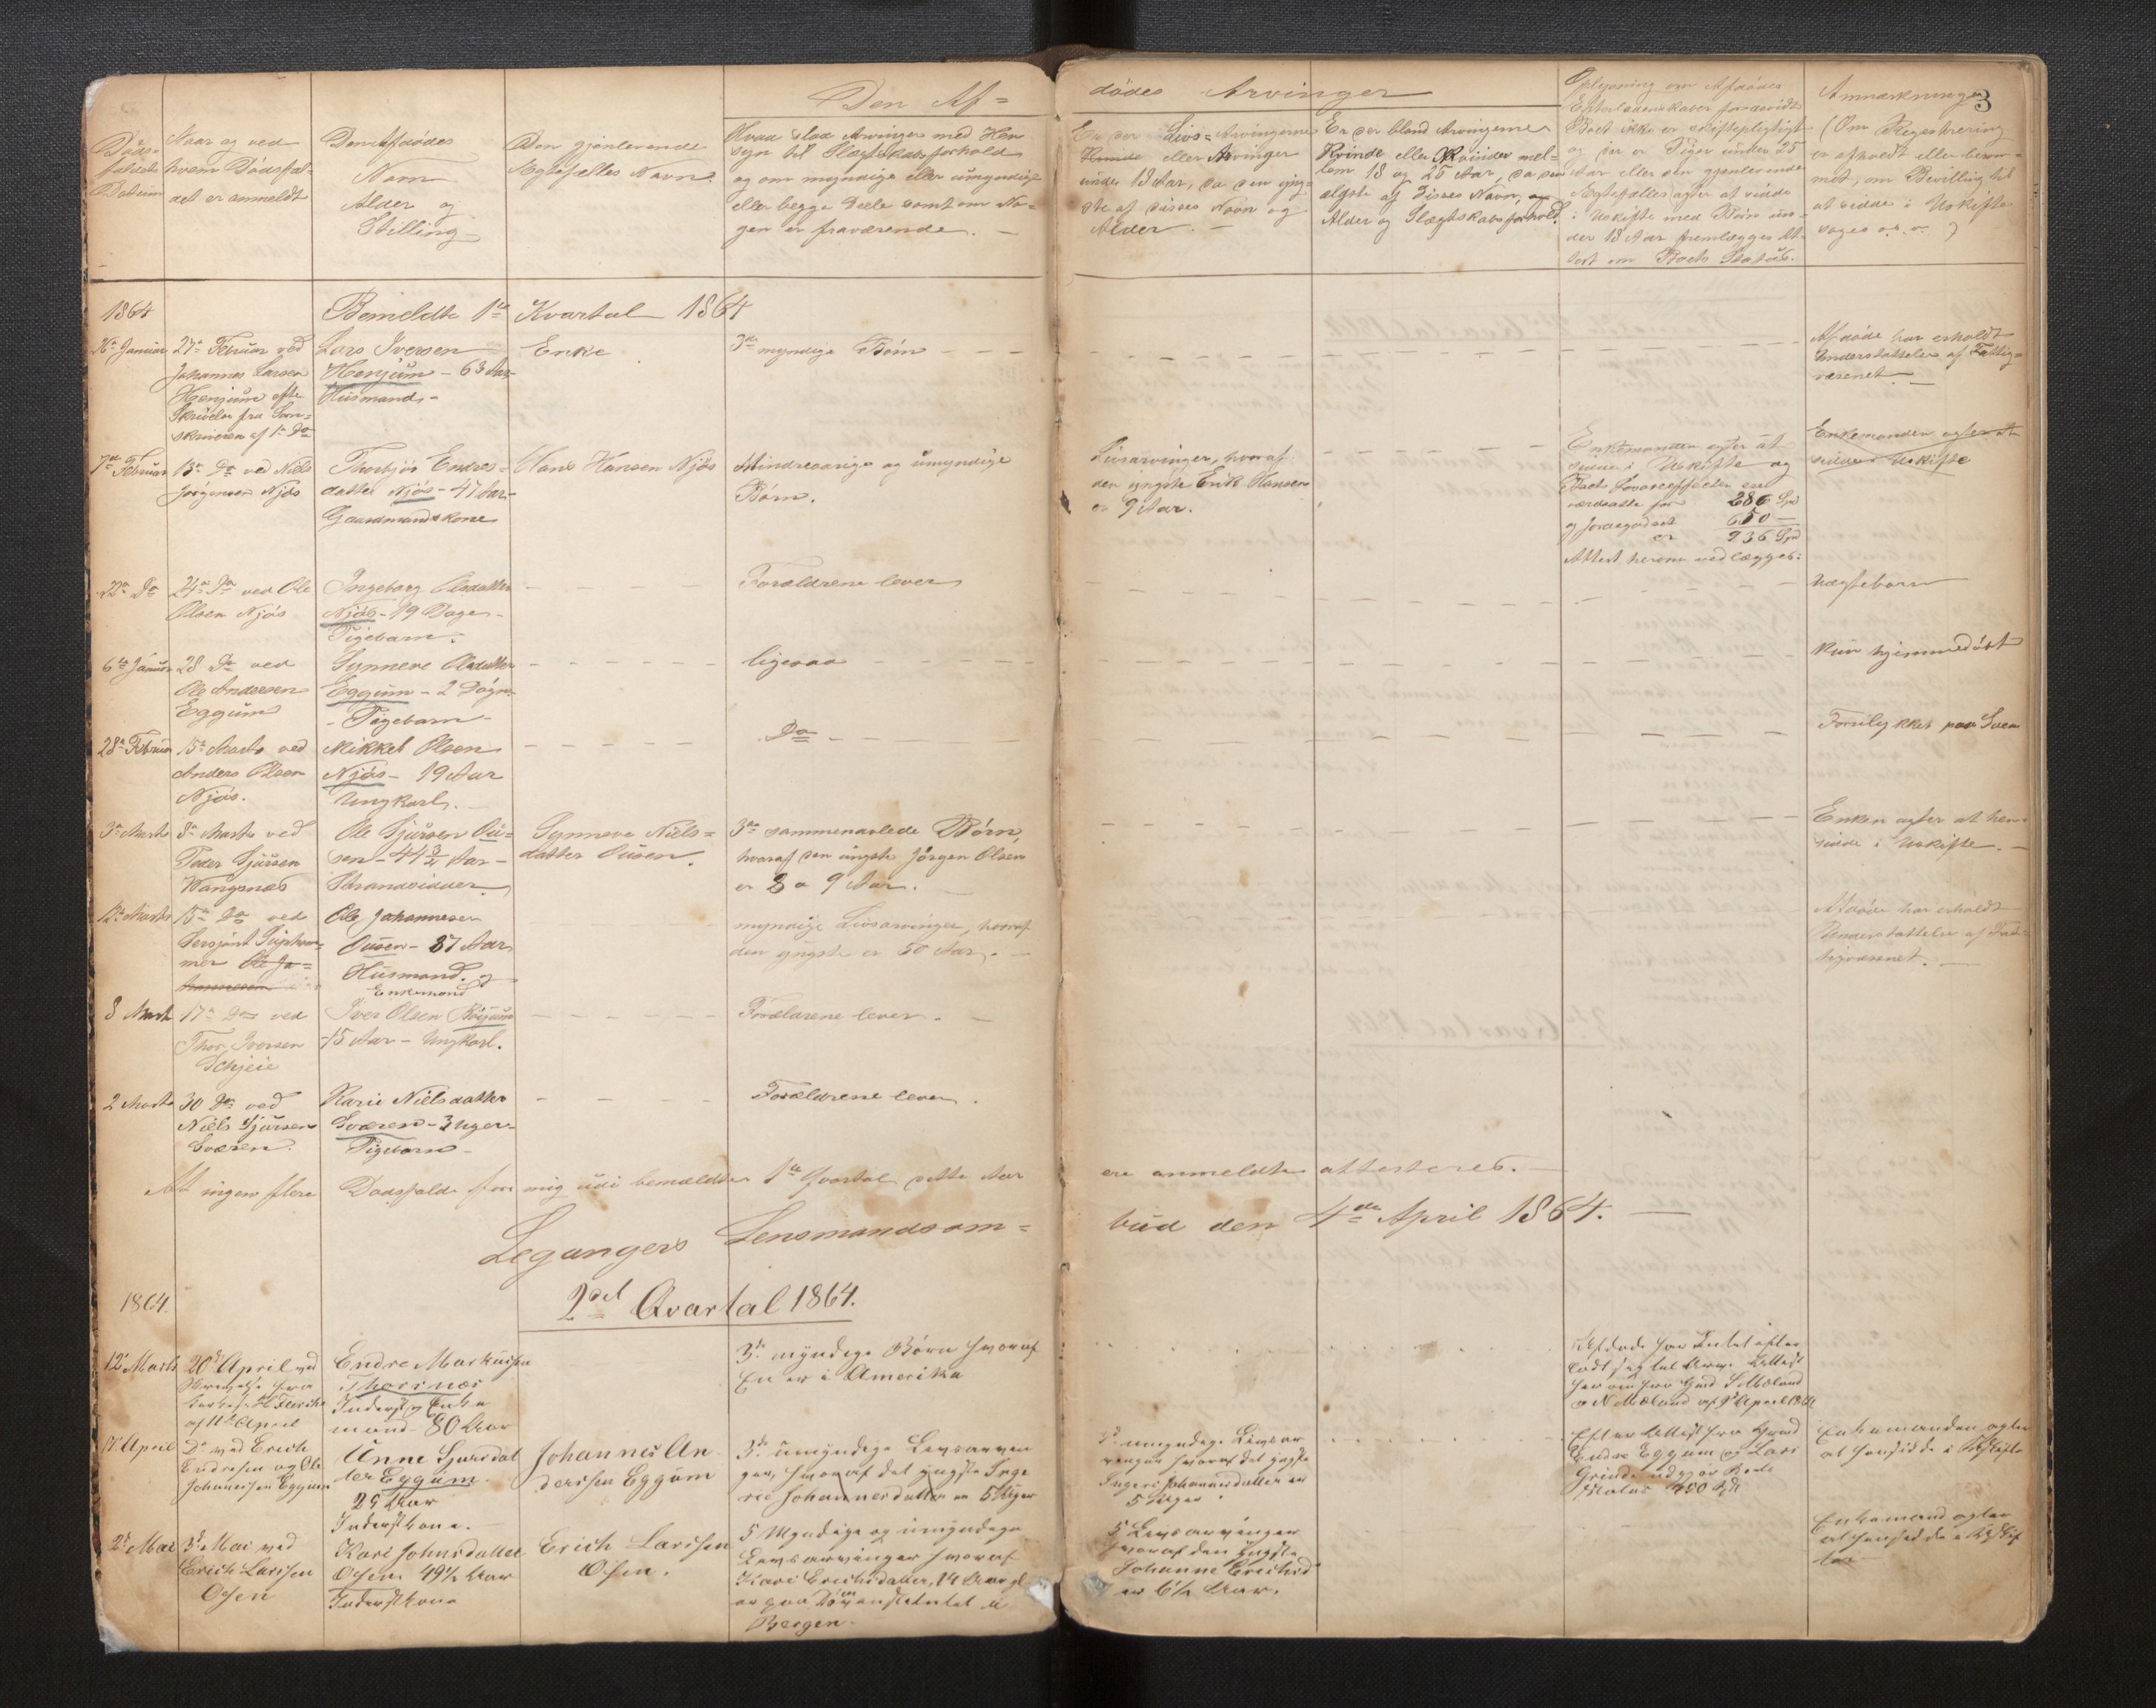 3
Den Af=
dödes Arvinger
Döds-
faldets
Datum
Naar og ved
hvem Dødsfal-
det er anmeldt
Den Afdödes
Navn
Alder og
Stilling
Den gjenlevende
Ægtefælles Navn.
Hvad slag Arvinger med Hen
syn til Slægtskabsforhold
og om myndige eller umyndige
eller begge Dele samt om No-
gen er fraværende.
Er der Livs=Arvingerne
Kvinde eller Arvinger
under 18 Aar, da den yng-
ste af disses Navn og
Alder.
Er der bland Arvingerne
Kvinde eller Kvinder mel-
lem 18 og 25 Aar, da den
ældste af Disses Navn, og
Alder og Slægtskabsforhold.
Oplysning om Afdødes
Efterladenskaber forsaavidt
Boet ikke er skiftepligtigt
og der er Piger under 25
Aar eller den gjenlevende
Ægtefælle agter at sidde
i Uskifte med Børn un-
der 18 Aar fremlægges At-
test om Boets Status.
Anmærkninger
(Om Registrering
er afholdt eller berau-
met, om Bevilling til
at sidde i Uskifte
søges o.s.v.)
1864
Bemeldte 1ste Kvartal 1864
26de Januar
27de Februar ved
Johannes Larsen
Henjum efter
Skrivelse fra Sor-
skriveren af 1ste Do
Lars Iversen
Henjum - 63 Aar
Husmand -
Enke
3de myndige Børn
Afdøde har erholdt
Understøttelse af Fattig-
væsenet
7de Februar
13de Do ved Niels
Jörgensen Njös
Thorbjör Endres-
datter Njös - 47 Aar
Gaardmandskone
Hans Hansen Njös
Mindreaarige og umyndige
Børn.
Livsarvinger, hvoraf
den yngste Erik Hansen
er 9 Aar.
Enkemanden agter at
sidde i Uskifte og
Boets Løsøreeffecter ere
værdsatte for 286 Spd
og Jordegodset 650 -
er 936 Spd
Attest herom vedlægges.
Enkemanden agter at
sidde i Uskifte
22de Do
24de Do ved Ole
Olsen Njös
Ingeborg Olsdatter
Njös - 19 Dage -
Pigebarn.
Forældrene lever
Uægtebarn
6te Januar
28 Do ved
Ole Andersen
Eggum
Synneve Olsdatter
Eggum - 2 Døgn
- Pigebarn -
ligesaa
Kun hjemmedöbt
28de Februar
15de Marts ved
Anders Olsen
Njös.
Mikkel Olsen
Njös - 19 Aar
Ungkarl.
Do
Forulykket paa Søen
3de Marts
8de Marts ved
Peder Sjursen
Wangsnæs
Ole Sjursen Ou-
sen - 44 3/4 Aar -
Strandsidder
Synneve Niels-
datter Ousen.
3de sammenavlede Børn,
hvoraf den yngste Jörgen Olsen
er 8 a 9 Aar.
Enken agter at hen-
sidde i Uskifte.
12te Marts
15de Do ved
Sersjant
mer Ole Jo-
hannesen
Ole Johannesen
Ousen - 87 Aar
Husmand. og
Enkemand
myndige Livsarvinger, hvoraf
den yngste er 50 Aar.
Afdøde har erholdt
Understøttelse af Fat-
tigvæsenet.
8 Marts
17de Do ved
Thor Iversen
Schjeie
Iver Olsen
15 Aar - Ungkarl.
Forældrene lever.
2 Marts
30 Do ved
Niels Sjursen
Sværen.
Karie Nielsdatter
Sværen - 3 Uger -
Pigebarn -
Forældrene lever.
At ingen flere Dødsfalde for mig udi bemældte 1ste Qvartal dette Aar
ere anmeldte attesteres.
Legangers Lensmandsom=
bud den 4de April 1864.
1864.
2det Qvartal 1864.
12te Marts
20de April ved
Skrivelse fra
af 11te April
Endre Markussen
Thorsnæs
Inderst og Enke
mand 80 Aar
3de myndige Børn hvoraf
En er i Amerika
Afdøde har Intet efter
ladt sig til Arv. Attest
herom fra Gmd S Mæland
o N Mæland af 9de April 1864
17 April
Do ved Erich
Endresen og Ole
Johannessen Eggum
Anne Sjursdat
ter Eggum.
29 Aar
Inderstkone.
Johannes An
dersen Eggum
3de umyndige Livsarvin
ger, hvoraf det yngste Inge
ri Johannesdatter er 5 Uger
3de umyndige Livsar
vinger hvoraf det yngste
Ingeri Johannesdatter er
5 Uger
Efter Attest fra Gmd
Endre Eggum og Lars
Grinde udgjör Boets
Status 450 Spd
Enkemanden agter
at hensidde i Uskifte
2de Mai
3de Mai ved
Erich Larssen
Osen
Kari Johnsdatter
Osen 49½ Aar
Inderstkone
Erich Larssen
Osen.
5 Myndige og umyndige
Livsarvinger hvoraf
Kari Erichsdatter, 14 Aar gl
er paa Döveinstitutet i
Bergen.
5 Livsarvinger
hvoraf den yngste
Johanne Erichsd
er 6½ Aar.
Enkemand agter
at hensidde i Uskif
te